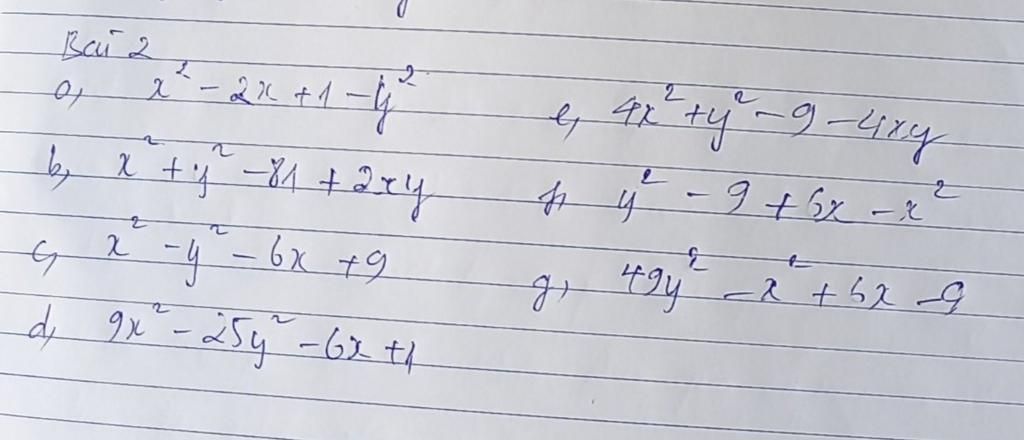 Bài 2
a, x² - 2x + 1 - y²
b, x² + y² - 81 + 2xy
c, x² - y² - 6x + 9
d, 9x² - 25y² - 6x + 1
e, 4x² + y² - 9 - 4xy
f, y² - 9 + 6x - x²
g, 49y² - x² + 6x - 9